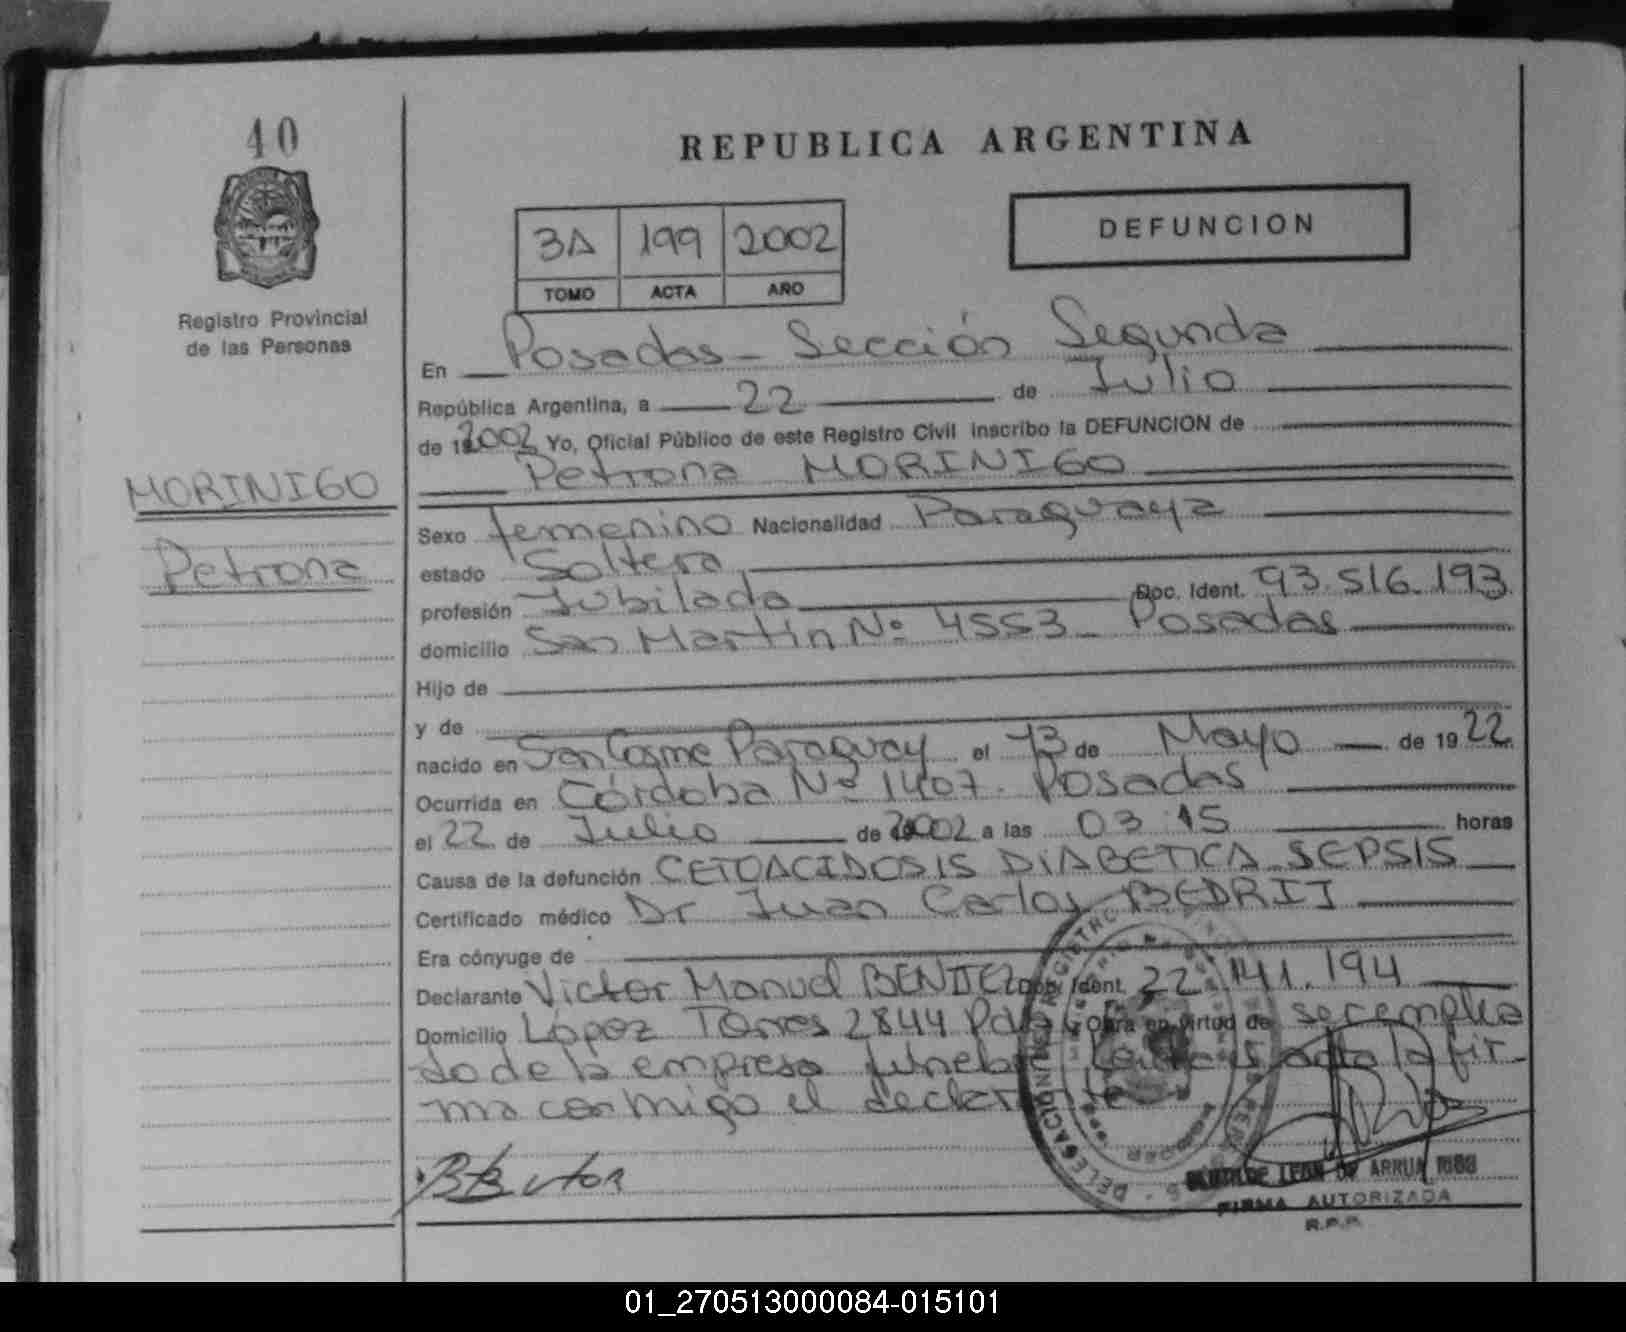 40
REPUBLICA ARGENTINA
3A 199 2002
TOMO ACTA AÑO
DEFUNCION
Registro Provincial
de las Personas
En Posadas - Sección Segunda
República Argentina, a 22 de Julio
de 2002 Yo, Oficial Público de este Registro Civil inscribo la DEFUNCION de
Petrona MORINIGO
MORINIGO
Petrona
Sexo femenino Nacionalidad Paraguaya
estado Soltera
profesión Jubilada Doc. Ident. 93.516.193
domicilio San Martín Nº 4553 - Posadas
Hijo de
y de
nacido en San Cosme Paraguay el 13 de Mayo de 1922
Ocurrida en Córdoba Nº 1407. Posadas
el 22 de Julio de 2002 a las 03 15 horas
Causa de la defunción CETOACIDOSIS DIABETICA SEPSIS
Certificado médico Dr Juan Carlos BEDRIJ
Era cónyuge de
Declarante Victor Manuel BENITEZ Doc. Ident. 22.141.194
Domicilio López Torres 2844 Pdas Obra en virtud de ser emplea
do de la empresa funebre acta la fir
ma conmigo el declarante
DE ARRUA
FIRMA AUTORIZADA
R.P.P.
01_270513000084-015101